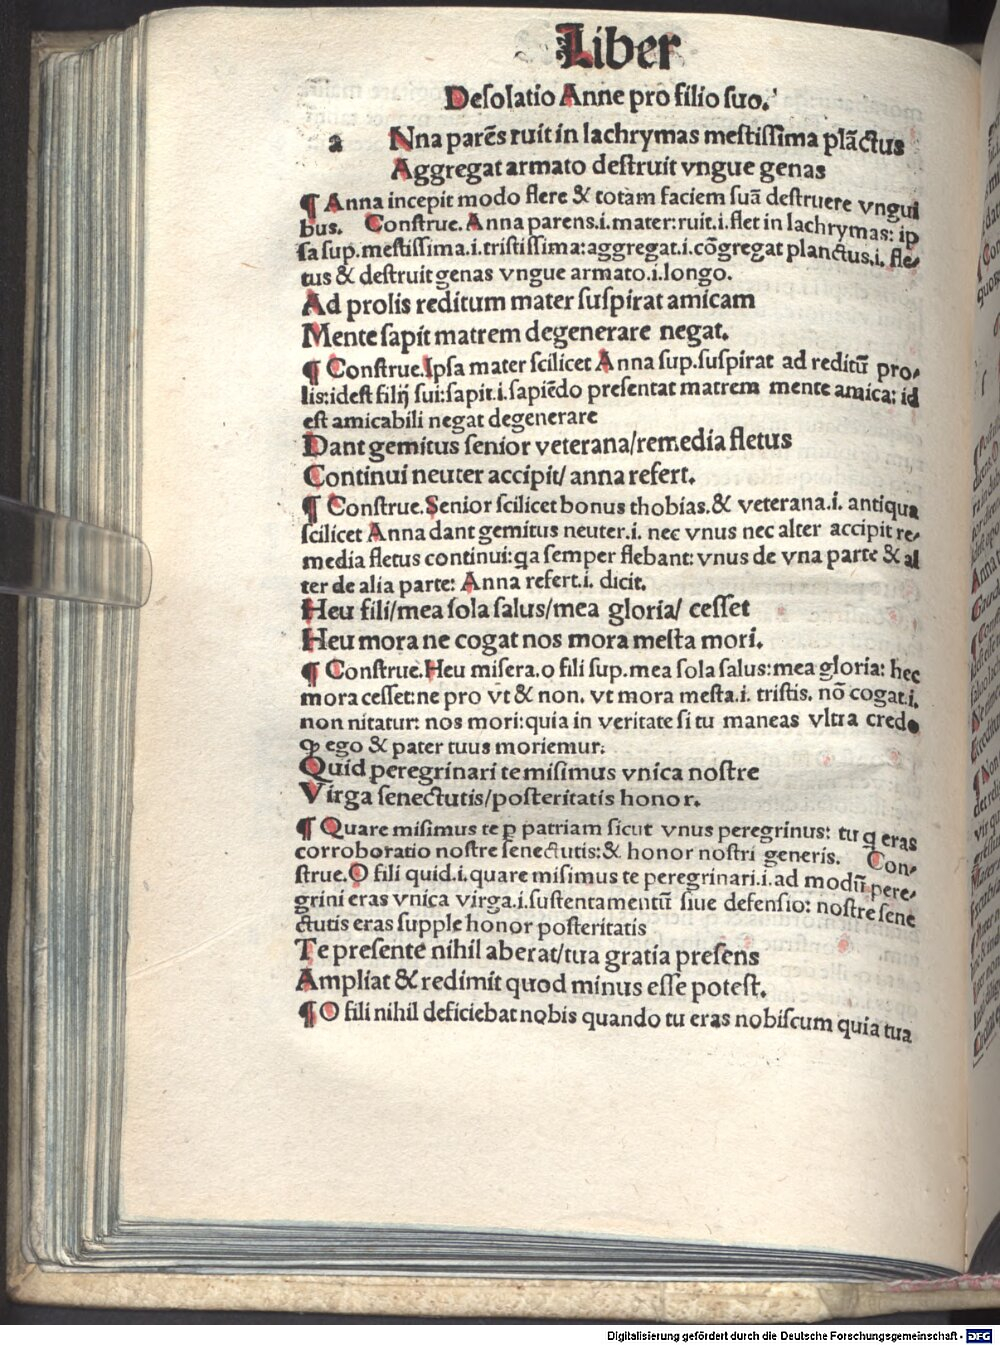 Liber
Desolatio Anne pro filio suo.
a Nna parēs ruit in lachrymas mestissima plāctus
Aggregat armato destruit vngue genas
¶ Anna incepit modo flere & totam faciem suā destruere vngui
bus. Construe. Anna parens.i.mater:ruit.i.flet in lachrymas: ip
sa sup.mestissima.i.tristissima:aggregat.i.cōgregat planctus.i. fle⸗
tus & destruit genas vngue armato.i.longo.
Ad prolis reditum mater suspirat amicam
Mente sapit matrem degenerare negat.
¶ Construe.Ipsa mater scilicet Anna sup.suspirat ad reditū pro⸗
lis:idest filij sui:sapit.i.sapiēdo presentat matrem mente amica: id
est amicabili negat degenerare
Dant gemitus senior veterana/remedia fletus
Continui neuter accipit/ anna refert.
¶ Construe.Senior scilicet bonus thobias.& veterana.i. antiqua
scilicet Anna dant gemitus neuter.i. nec vnus nec alter accipit re⸗
media fletus continui:qa semper flebant: vnus de vna parte & al
ter de alia parte: Anna refert.i. dicit.
Heu fili/mea sola salus/mea gloria/ cesset
Heu mora ne cogat nos mora mesta mori.
¶ Construe.Heu misera.o fili sup.mea sola salus:mea gloria: hec
mora cesset:ne pro v̄t & non. vt mora mesta.i. tristis. nō cogat.i.
non nitatur: nos mori:quia in veritate si tu maneas vltra credo
ꝙ ego & pater tuus moriemur:
Quid peregrinari te misimus vnica nostre
Virga senectutis/posteritatis honor.
¶ Quare misimus te ꝑ patriam sicut vnus peregrinus: tu q eras
corroboratio nostre senectutis:& honor nostri generis. Con⸗
strue.O fili quid.i.quare misimus te peregrinari.i.ad modū pere⸗
grini eras vnica virga.i.sustentamentū siue defensio: nostre sene
ctutis eras supple honor posteritatis
Te presente nihil aberat/tua gratia presens
Ampliat & redimit quod minus esse potest.
¶ O fili nihil deficiebat nobis quando tu eras nobiscum quia tua
Digitalisierung gefördert durch die Deutsche Forschungsgemeinschaft - DFG